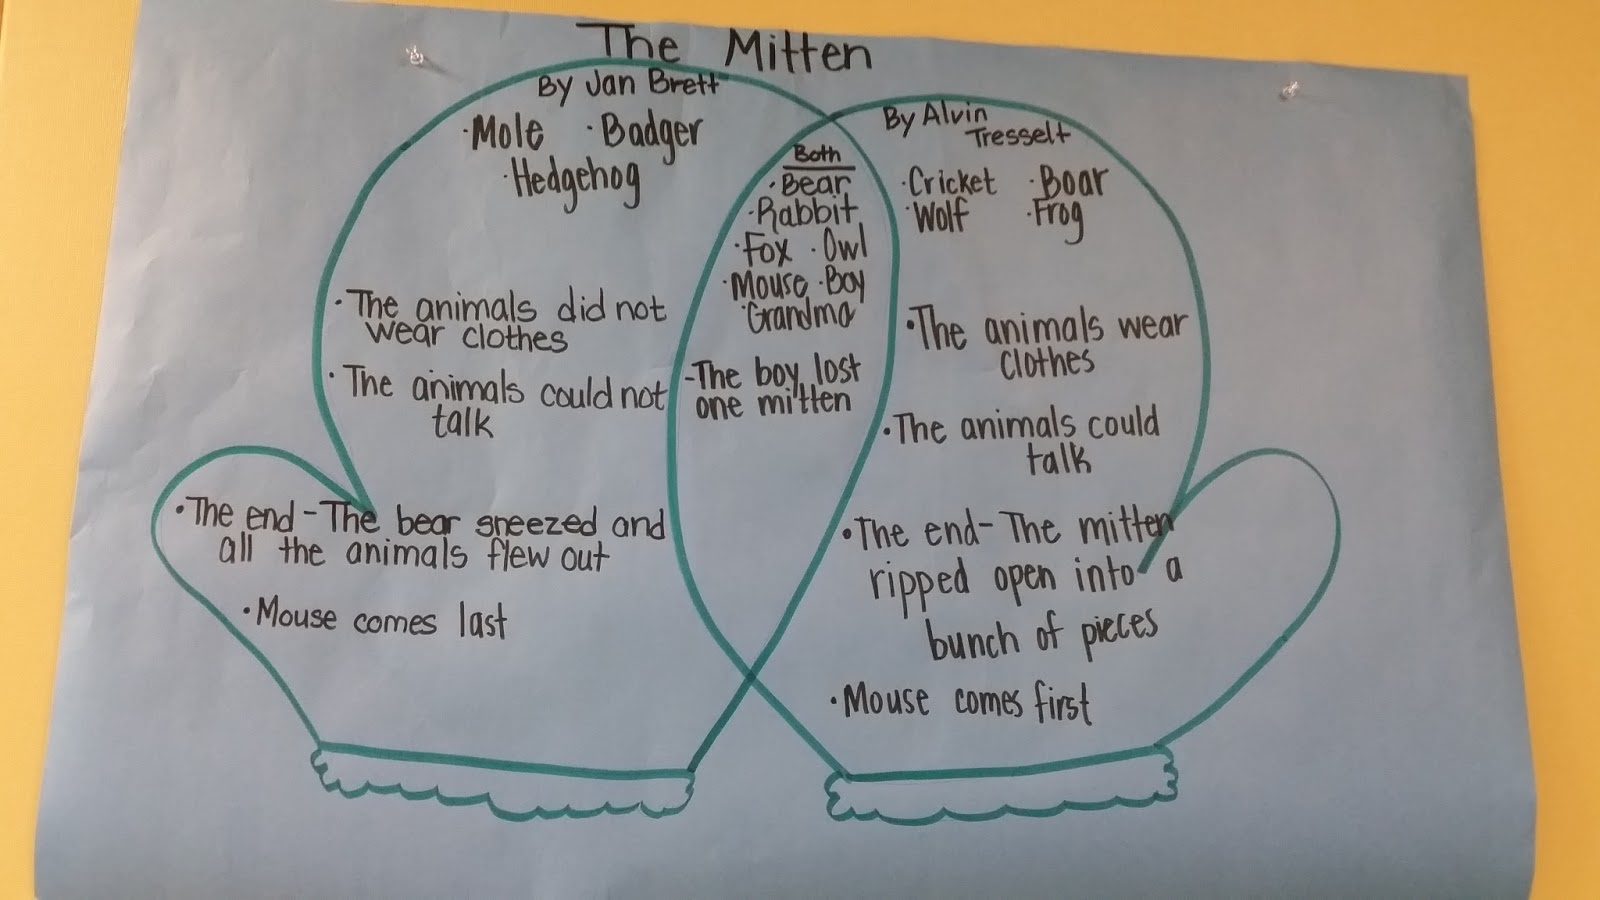 The Mitten
By Jan Brett
·Mole ·Badger
·Hedgehog
·The animals did not
wear clothes
·The animals could not
talk
·The end - The bear sneezed and
all the animals flew out
·Mouse comes last
Both
·Bear
·Rabbit
·Fox ·Owl
·Mouse ·Boy
·Grandma
-The boy lost
one mitten
By Alvin
Tresselt
·Cricket ·Boar
·Wolf ·Frog
·The animals wear
clothes
·The animals could
talk
·The end - The mitten
ripped open into a
bunch of pieces
·Mouse comes first